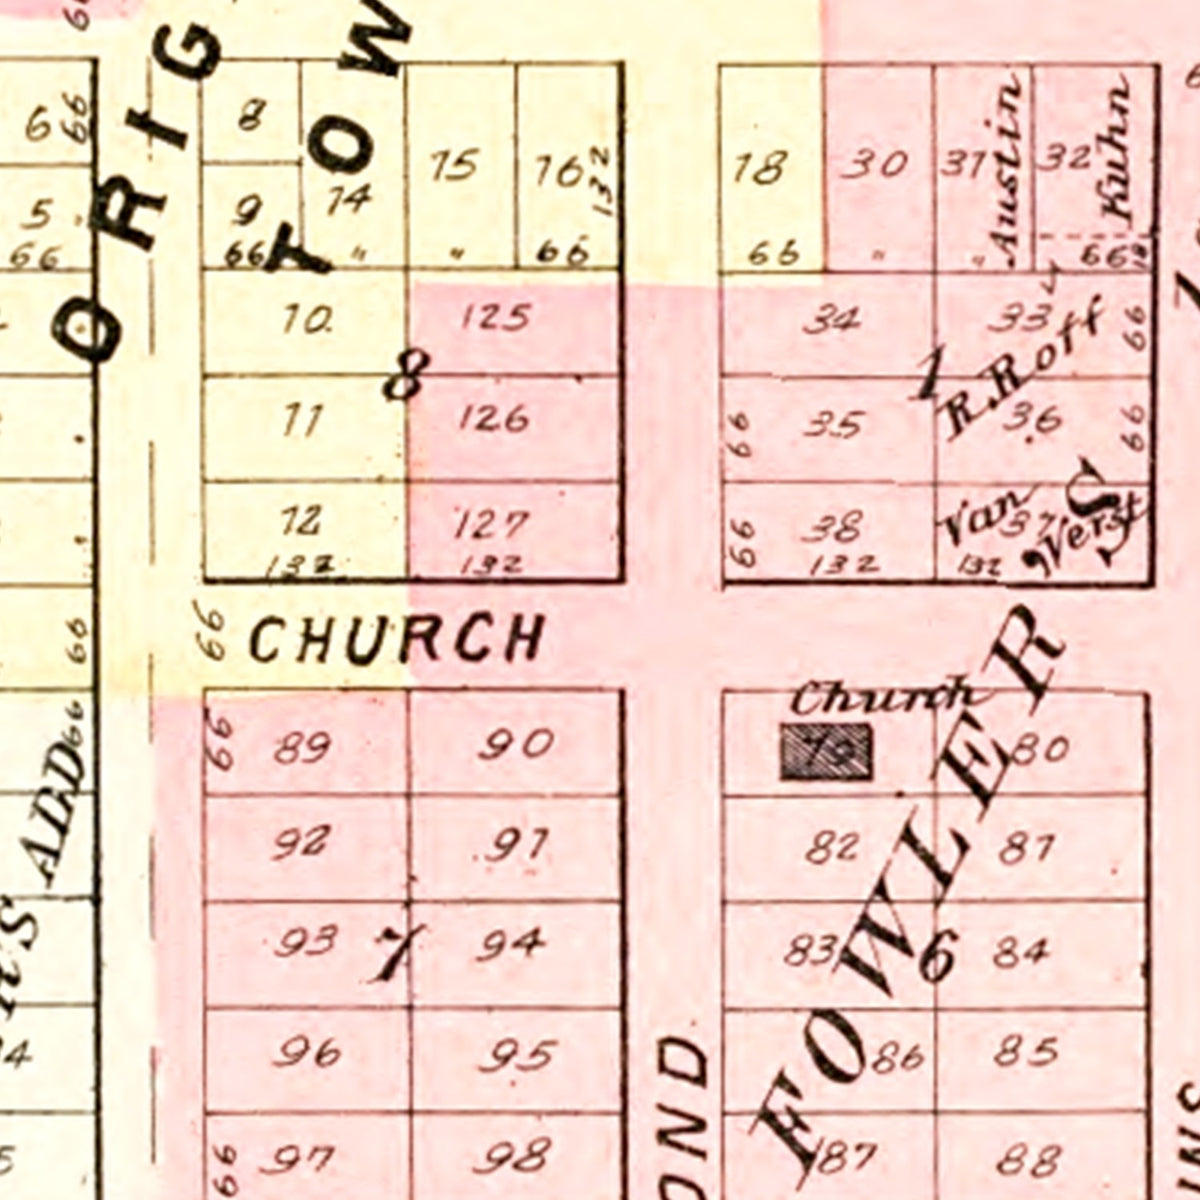 66
6
66
8
15
16
132
18
30
31
Austin
32
Kuhn
5
66
9
66
14
"
"
66
66
"
"
66
ORIG
TOW
10
125
34
33
66
R. Roff
8
1
11
126
66
35
36
66
12
127
66
38
Van
37
Werst
132
132
132
132
66
66
CHURCH
Church
66
66
89
90
79
80
ADD
92
91
82
81
93
7
94
83
6
84
FOWLER'S
4
96
95
86
85
5
66
97
98
OND
87
88